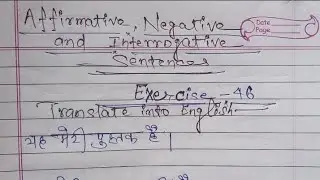 Affirmative, Negative
Date
Page
and Interrogative
Sentences
Exercise - 46
Translate into English.
यह मेरी पुस्तक है।